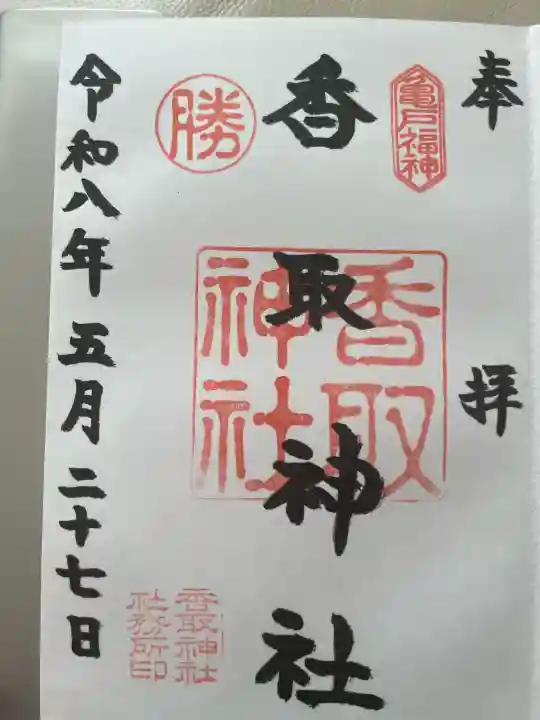 奉拝
亀戸福神
香取神社
香取
神社
勝
香取神社
社務所印
令和八年五月二十七日